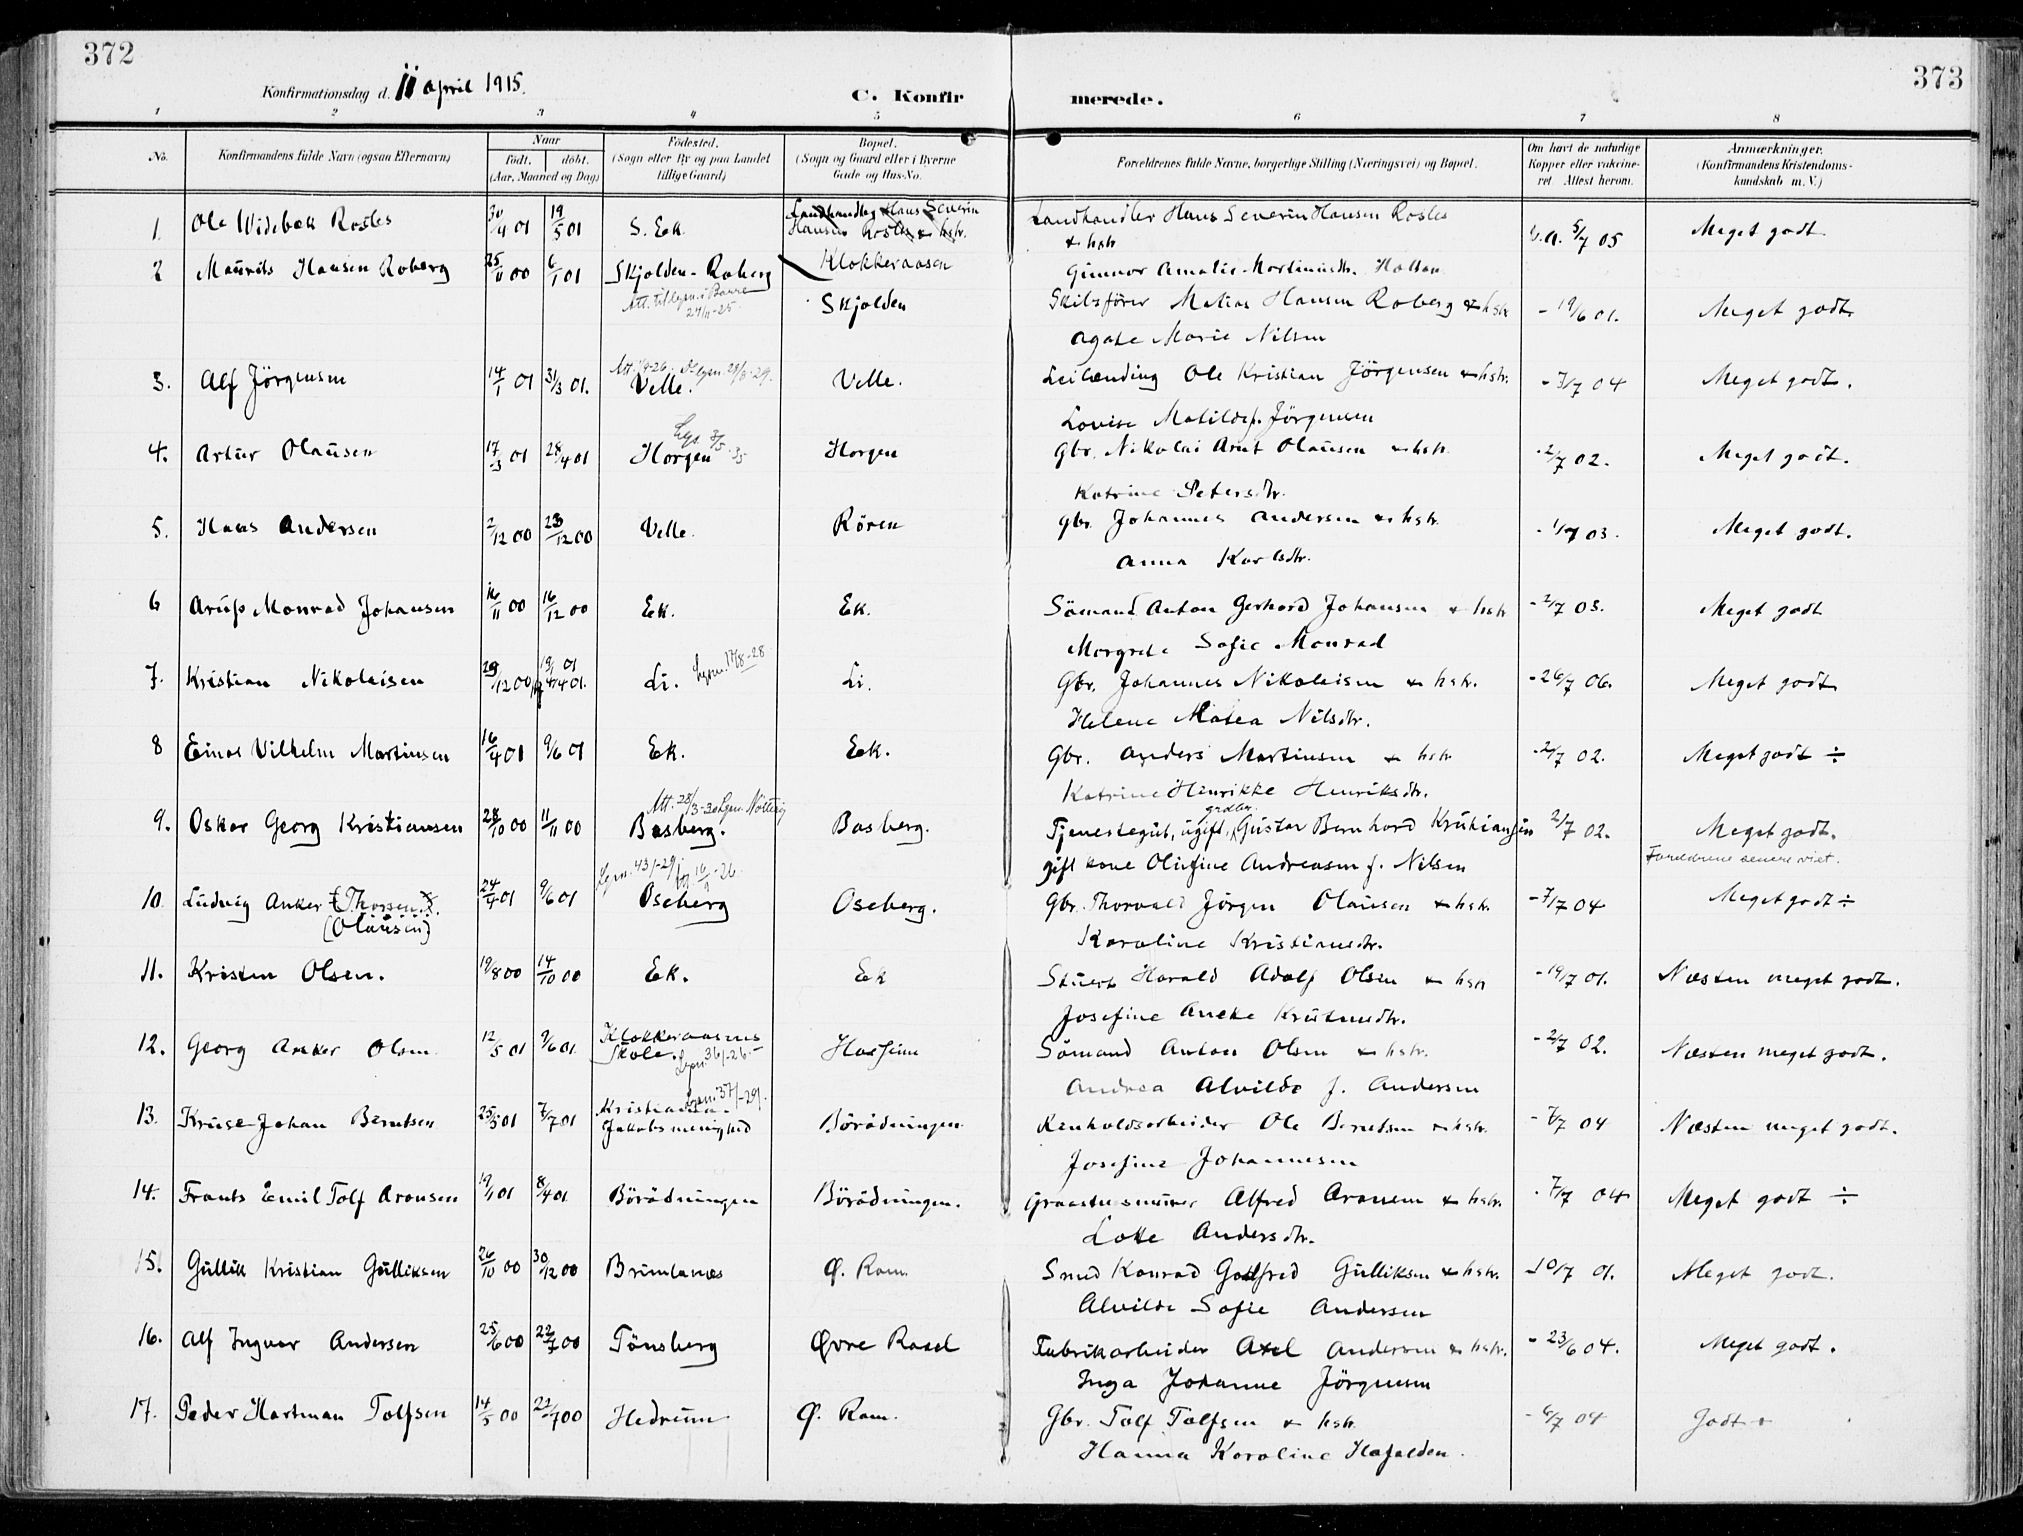 372
373
Konfirmationsdag d. 11 april 1915.
C. Konfir merede.
1 2 3 4 5 6 7 8
No. Konfirmandens fulde Navn (ogsaa Efternavn) Naar født. døbt. (Aar, Maaned og Dag) Fødested. (Sogn eller By og paa Landet tillige Gaard) Bopæl. (Sogn og Gaard eller i Byerne Gade og Hus-No. Forældrenes fulde Navne, borgerlige Stilling (Næringsvei) og Bopæl. Om havt de naturlige Kopper eller vakcineret. Attest herom. Anmærkninger. (Konfirmandens Kristendomskundskab m. V.)
1. Ole Widebæk Rostes 30/4 01 19/5 01 S. Ek. Landhandleg Hans Severin Landhandler Hans Severin Hansen Rostes v.a. 5/7 05 Meget godt
Hansen Rostes & hstr. & hstr
Klokkeraasen Gunnor Amalie Mortinusdtr. Holtan
2 Maurits Hansen Roberg 25/11 00 6/1 01 Skjolden-Roberg Skjolden Skibsfører Matias Hansen Roberg & hstr - 19/6 01. Meget godt
Att. til lysn. i Borre 24/11-25.
Agate Marie Nilsen
3. Alf Jörgensen 14/1 01 31/3 01. Velle. Velle. Leilænding Ole Kristian Jörgensen & hstr. - 7/7 04 Meget godt.
Lovise Matildef. Jörgensen
4. Artur Olausen 17/3 01 28/4 01 Horgen Horgen Gbr. Nikolai Arnt Olausen & hstr. - 2/7 02. Meget godt.
Katrine Petersdtr.
5. Hans Andersen 2/12 00 23/12 00 Velle. Rören Gbr. Johannes Andersen & hstr. - 1/7 03. Meget godt.
Anna Karlsdtr.
6 Arups Monrad Johansen 16/11 00 16/12 00 Ek. Ek. Sömand Anton Gerhard Johansen & hstr - 2/7 03. Meget godt
Morgrete Sofie Monrad
7. Kristian Nikolaisen 29/12 00 19/1 01 Li. Lysn. 17/8-28 Li. Gbr. Johannes Nikolaisen & hstr. - 26/7 06. Meget godt
Helene Matea Nilsdtr.
8 Einar Vilhelm Martinsen 16/4 01 9/6 01 Ek. Eek. Gbr. Anders Martinsen & hstr - 2/7 02. Meget godt ÷
Katrine Henrikke Henriksdtr.
9. Oskar Georg Kristiansen 28/10 00 11/11 00 Basberg. Basberg. Tjenestegut, ugift, Gustav Bernhard Kristiansen 2/7 02. Meget godt.
gift kone Olufine Andreasen f. Nilsen Forældrene senere viet.
10. Ludvig Anker (Thorsen). 24/4 01 9/6 01 Oseberg Oseberg. Gbr. Thorvald Jörgen Olausen & hstr. - 7/7 04 Meget godt ÷
(Olausen) Karoline Kristiansdtr.
11. Kristen Olsen. 19/8 00 14/10 00 Eek. Eek Stuert Harald Adolf Olsen & hstr - 19/7 01. Næsten meget godt.
Josefine Ancke Kristensdtr.
12. Georg Anker Olsen 12/5 01 9/6 01. Klokkeraasens Skole. Sömand Anton Olsen & hstr. - 2/7 02. Næsten meget godt.
Andrea Alvilde f. Andersen
13. Kruse Johan Berntsen 25/5 01 7/7 01 Kristiania. Jakobs menighed Börödningen. Renholdsarbeider Ole Berntsen & hstr. - 7/7 04 Næsten meget godt.
Josefine Johannesen
14. Frants Emil Tolf Aronsen 19/1 01 8/4 01 Börödningen Börödningen. Graastensminer Alfred Aronsen & hstr. - 7/7 04 Meget godt ÷
Lotte Andersdtr.
15. Gullik Kristian Gulliksen 26/10 00 30/12 00 Brunlanæs Ø. Ram. Smed Konrad Godfred Gulliksen & hstr. - 10/7 01. Meget godt.
Alvilde Sofie Andersen
16. Alf Ingvar Andersen 25/6 00 22/7 00 Tönsberg Øvre Rasel Fabrikarbeider Axel Andersen & hstr. - 23/6 04. Meget godt.
Inga Johanne Jörgensen
17. Peder Hartman Tolfsen 14/5 00 22/7 00 Hedrum Ø. Ram. Gbr. Tolf Tolfsen & hstr. - 6/7 04 Godt +
Hanna Karoline